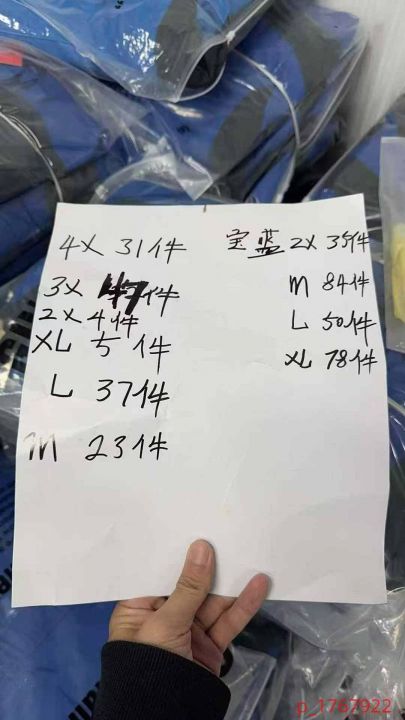 4X 31件
3X 47件
2X 4件
XL 5件
L 37件
M 23件
宝蓝 2X 35件
M 84件
L 50件
XL 78件
p_1767922